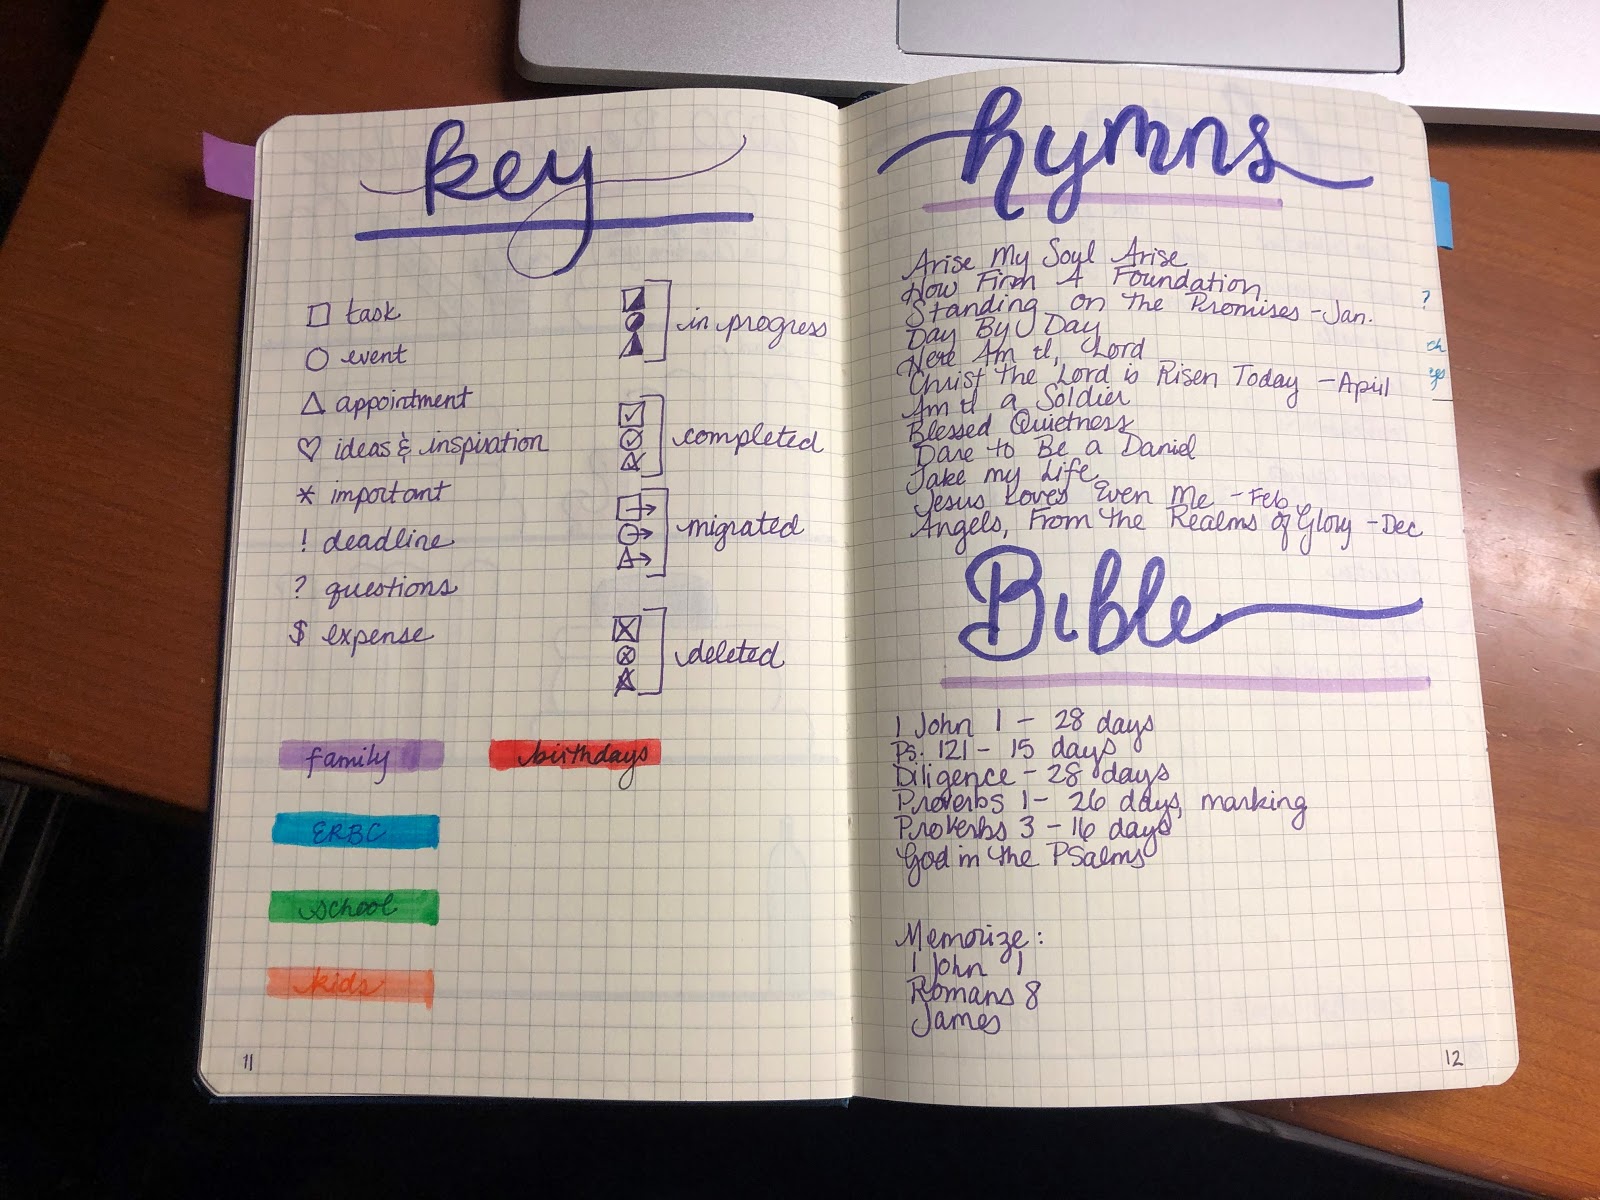 key
□ task
○ event
△ appointment
♡ ideas & inspiration
* important
! deadline
? questions
$ expense
in progress
completed
migrated
deleted
family
birthdays
ERBC
school
kids
11
hymns
Arise My Soul Arise
How Firm A Foundation
Standing on the Promises - Jan.
Day By Day
Here Am I, Lord
Christ the Lord is Risen Today - April
Am I a Soldier
Blessed Quietness
Dare to Be a Daniel
Take my Life
Jesus Loves Even Me - Feb
Angels, From the Realms of Glory - Dec
?
ch
Bible
1 John 1 - 28 days
Ps. 121 - 15 days
Diligence - 28 days
Proverbs 1 - 26 days, marking
Proverbs 3 - 16 days
God in the PSalms
Memorize:
1 John 1
Romans 8
James
12